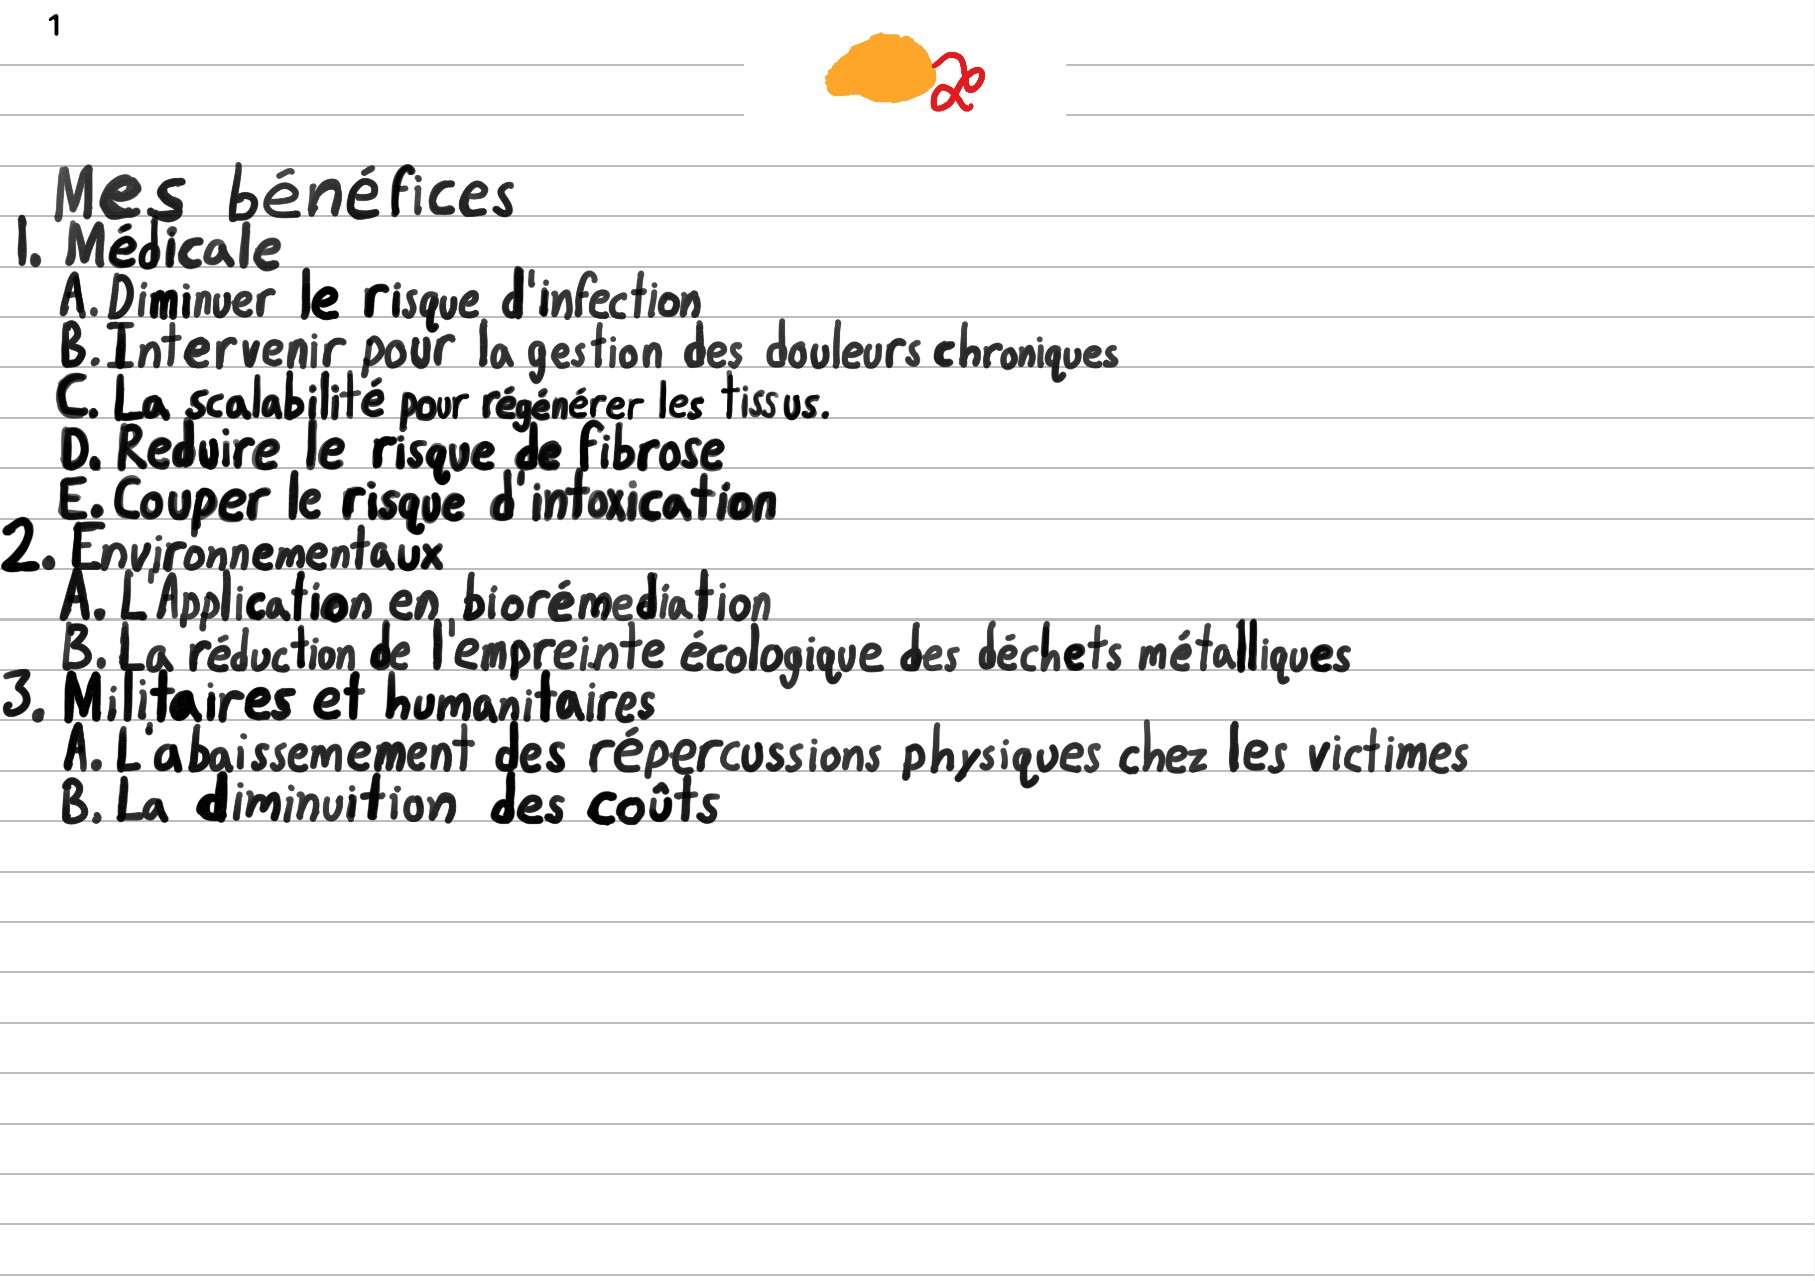 1
Mes bénéfices
1. Médicale
A. Diminuer le risque d'infection
B. Intervenir pour la gestion des douleurs chroniques
C. La scalabilité pour régénérer les tissus.
D. Reduire le risque de fibrose
E. Couper le risque d'intoxication
2. Environnementaux
A. L'Application en biorémediation
B. La réduction de l'empreinte écologique des déchets métalliques
3. Militaires et humanitaires
A. L'abaissemement des répercussions physiques chez les victimes
B. La diminuition des coûts